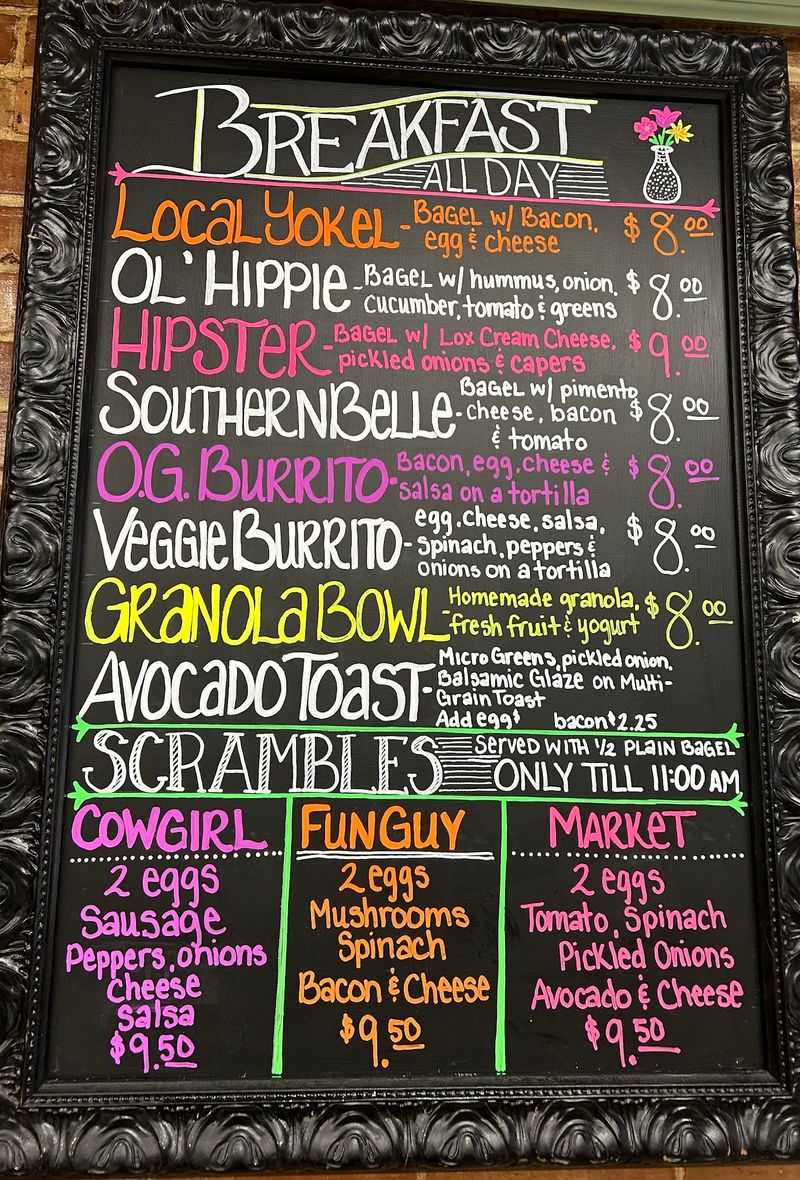 BREAKFAST
ALL DAY
LOCAL YOKEL - BAGEL W/ BACON, $8.00
egg & cheese
OL' HIPPIE - BAGEL W/ hummus, onion, $8.00
cucumber, tomato & greens
HIPSTER - BAGEL W/ Lox Cream Cheese, $9.00
pickled onions & capers
SOUTHERN BELLE - BAGEL W/ pimento $8.00
cheese, bacon
& tomato
O.G. BURRITO - Bacon, egg, cheese & $8.00
salsa on a tortilla
VEGGIE BURRITO - egg, cheese, salsa, $8.00
spinach, peppers &
onions on a tortilla
GRANOLA BOWL - Homemade granola, $8.00
fresh fruit & yogurt
AVOCADO TOAST - Micro Greens, pickled onion,
Balsamic Glaze on Multi-
Grain Toast
Add egg $ bacon $2.25
SCRAMBLES SERVED WITH 1/2 PLAIN BAGEL
ONLY TILL 11:00 AM
COWGIRL
2 eggs
Sausage
Peppers, onions
Cheese
Salsa
$9.50
FUN GUY
2 eggs
Mushrooms
Spinach
Bacon & Cheese
$9.50
MARKET
2 eggs
Tomato, Spinach
Pickled Onions
Avocado & Cheese
$9.50